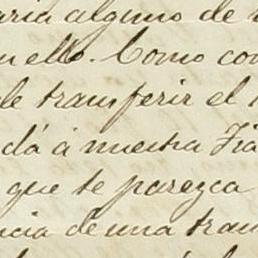 aria alguno de
en ello. Como co
de transferir el
da á nuestra Tia
que te parezca
ncia de una tran